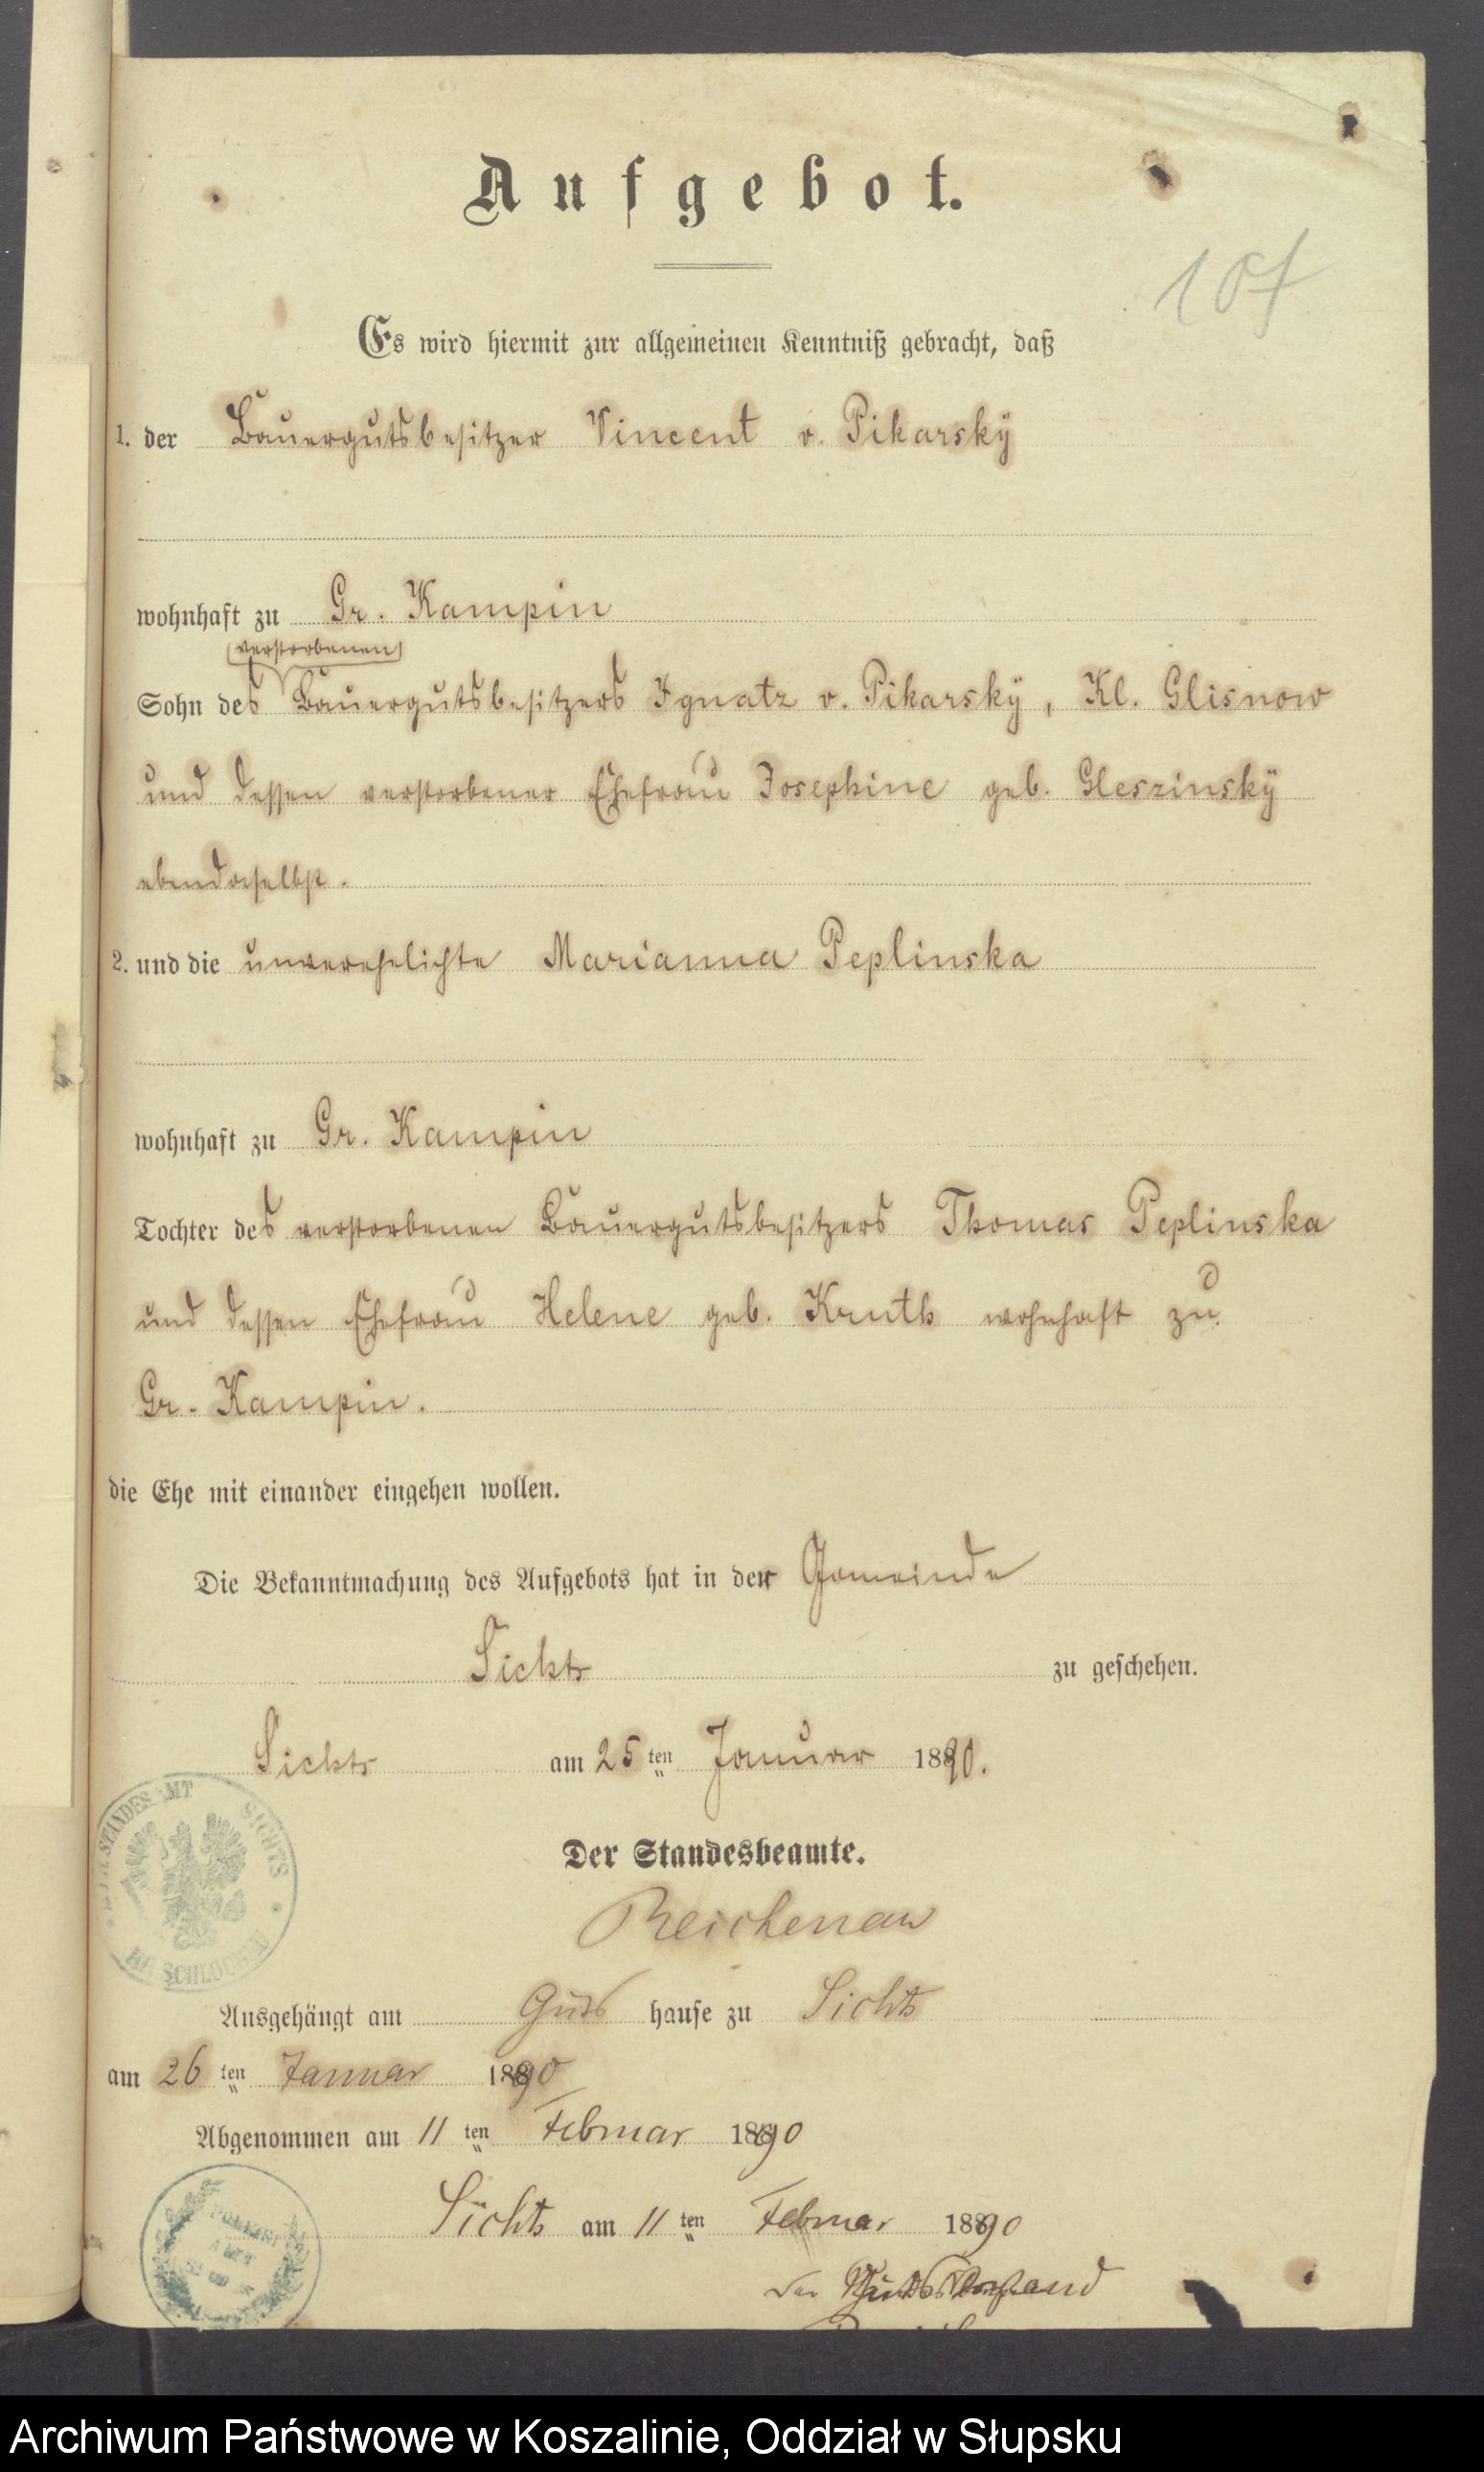 Aufgebot.
107
Es wird hiermit zur allgemeinen Kenntniß gebracht, daß
1. der Bauergutsbesitzer Vincent v. Pikarsky
wohnhaft zu Gr. Kampin
verstorbenen
Sohn des Bauergutsbesitzers Ignatz v. Pikarsky, Kl. Glisnow
und dessen verstorbener Ehefrau Josephine geb. Gleszinsky
ebendaselbst.
2. und die unverehelichte Marianna Peplinska
wohnhaft zu Gr. Kampin
Tochter des verstorbenen Bauergutsbesitzers Thomas Peplinska
und dessen Ehefrau Helene geb. Kruth wohnhaft zu
Gr. Kampin.
die Ehe mit einander eingehen wollen.
Die Bekanntmachung des Aufgebots hat in der Gemeinde
Sichts zu geschehen.
Sichts am 25 ten Januar 1890.
Der Standesbeamte.
Reichenau
STANDESAMT SICHTS
SCHLOCHAU
Ausgehängt am Guts hause zu Sichts
am 26 ten Januar 1890
Abgenommen am 11 ten Februar 1890
Sichts am 11 ten Februar 1890
Der Gutsvorstand
Archiwum Państwowe w Koszalinie, Oddział w Słupsku